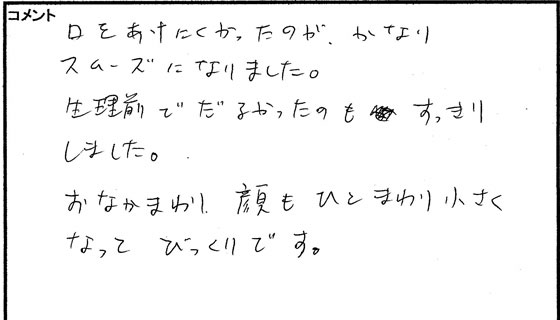 コメント
口をあけにくかったのが、かなり
スムーズになりました。
生理前でだるかったのも すっきり
しました。
おなかまわり、顔もひとまわり小さく
なって びっくりです。